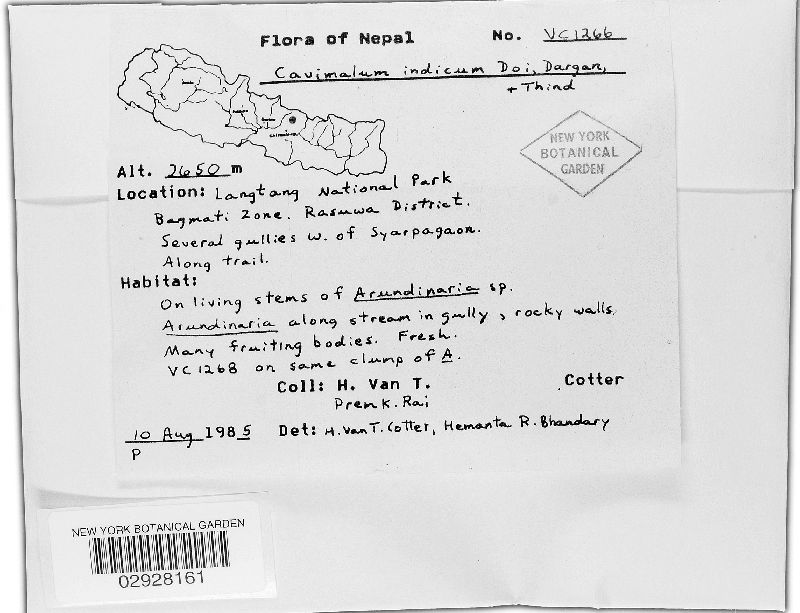 Flora of Nepal No. VC1266
Cavimalum indicum Doi, Dargan,
+ Thind
NEW YORK
BOTANICAL
GARDEN
Alt. 2650 m
Location: Langtang National Park
Bagmati Zone. Rasuwa District.
Several gullies W. of Syarpagaon.
Along trail.
Habitat:
On living stems of Arundinaria sp.
Arundinaria along stream in gully, rocky walls.
Many fruiting bodies. Fresh.
VC1268 on same clump of A.
Coll: H. Van T. Cotter
Prem K. Rai
10 Aug 1985 Det: H. Van T. Cotter, Hemanta R. Bhandary
P
NEW YORK BOTANICAL GARDEN
02928161